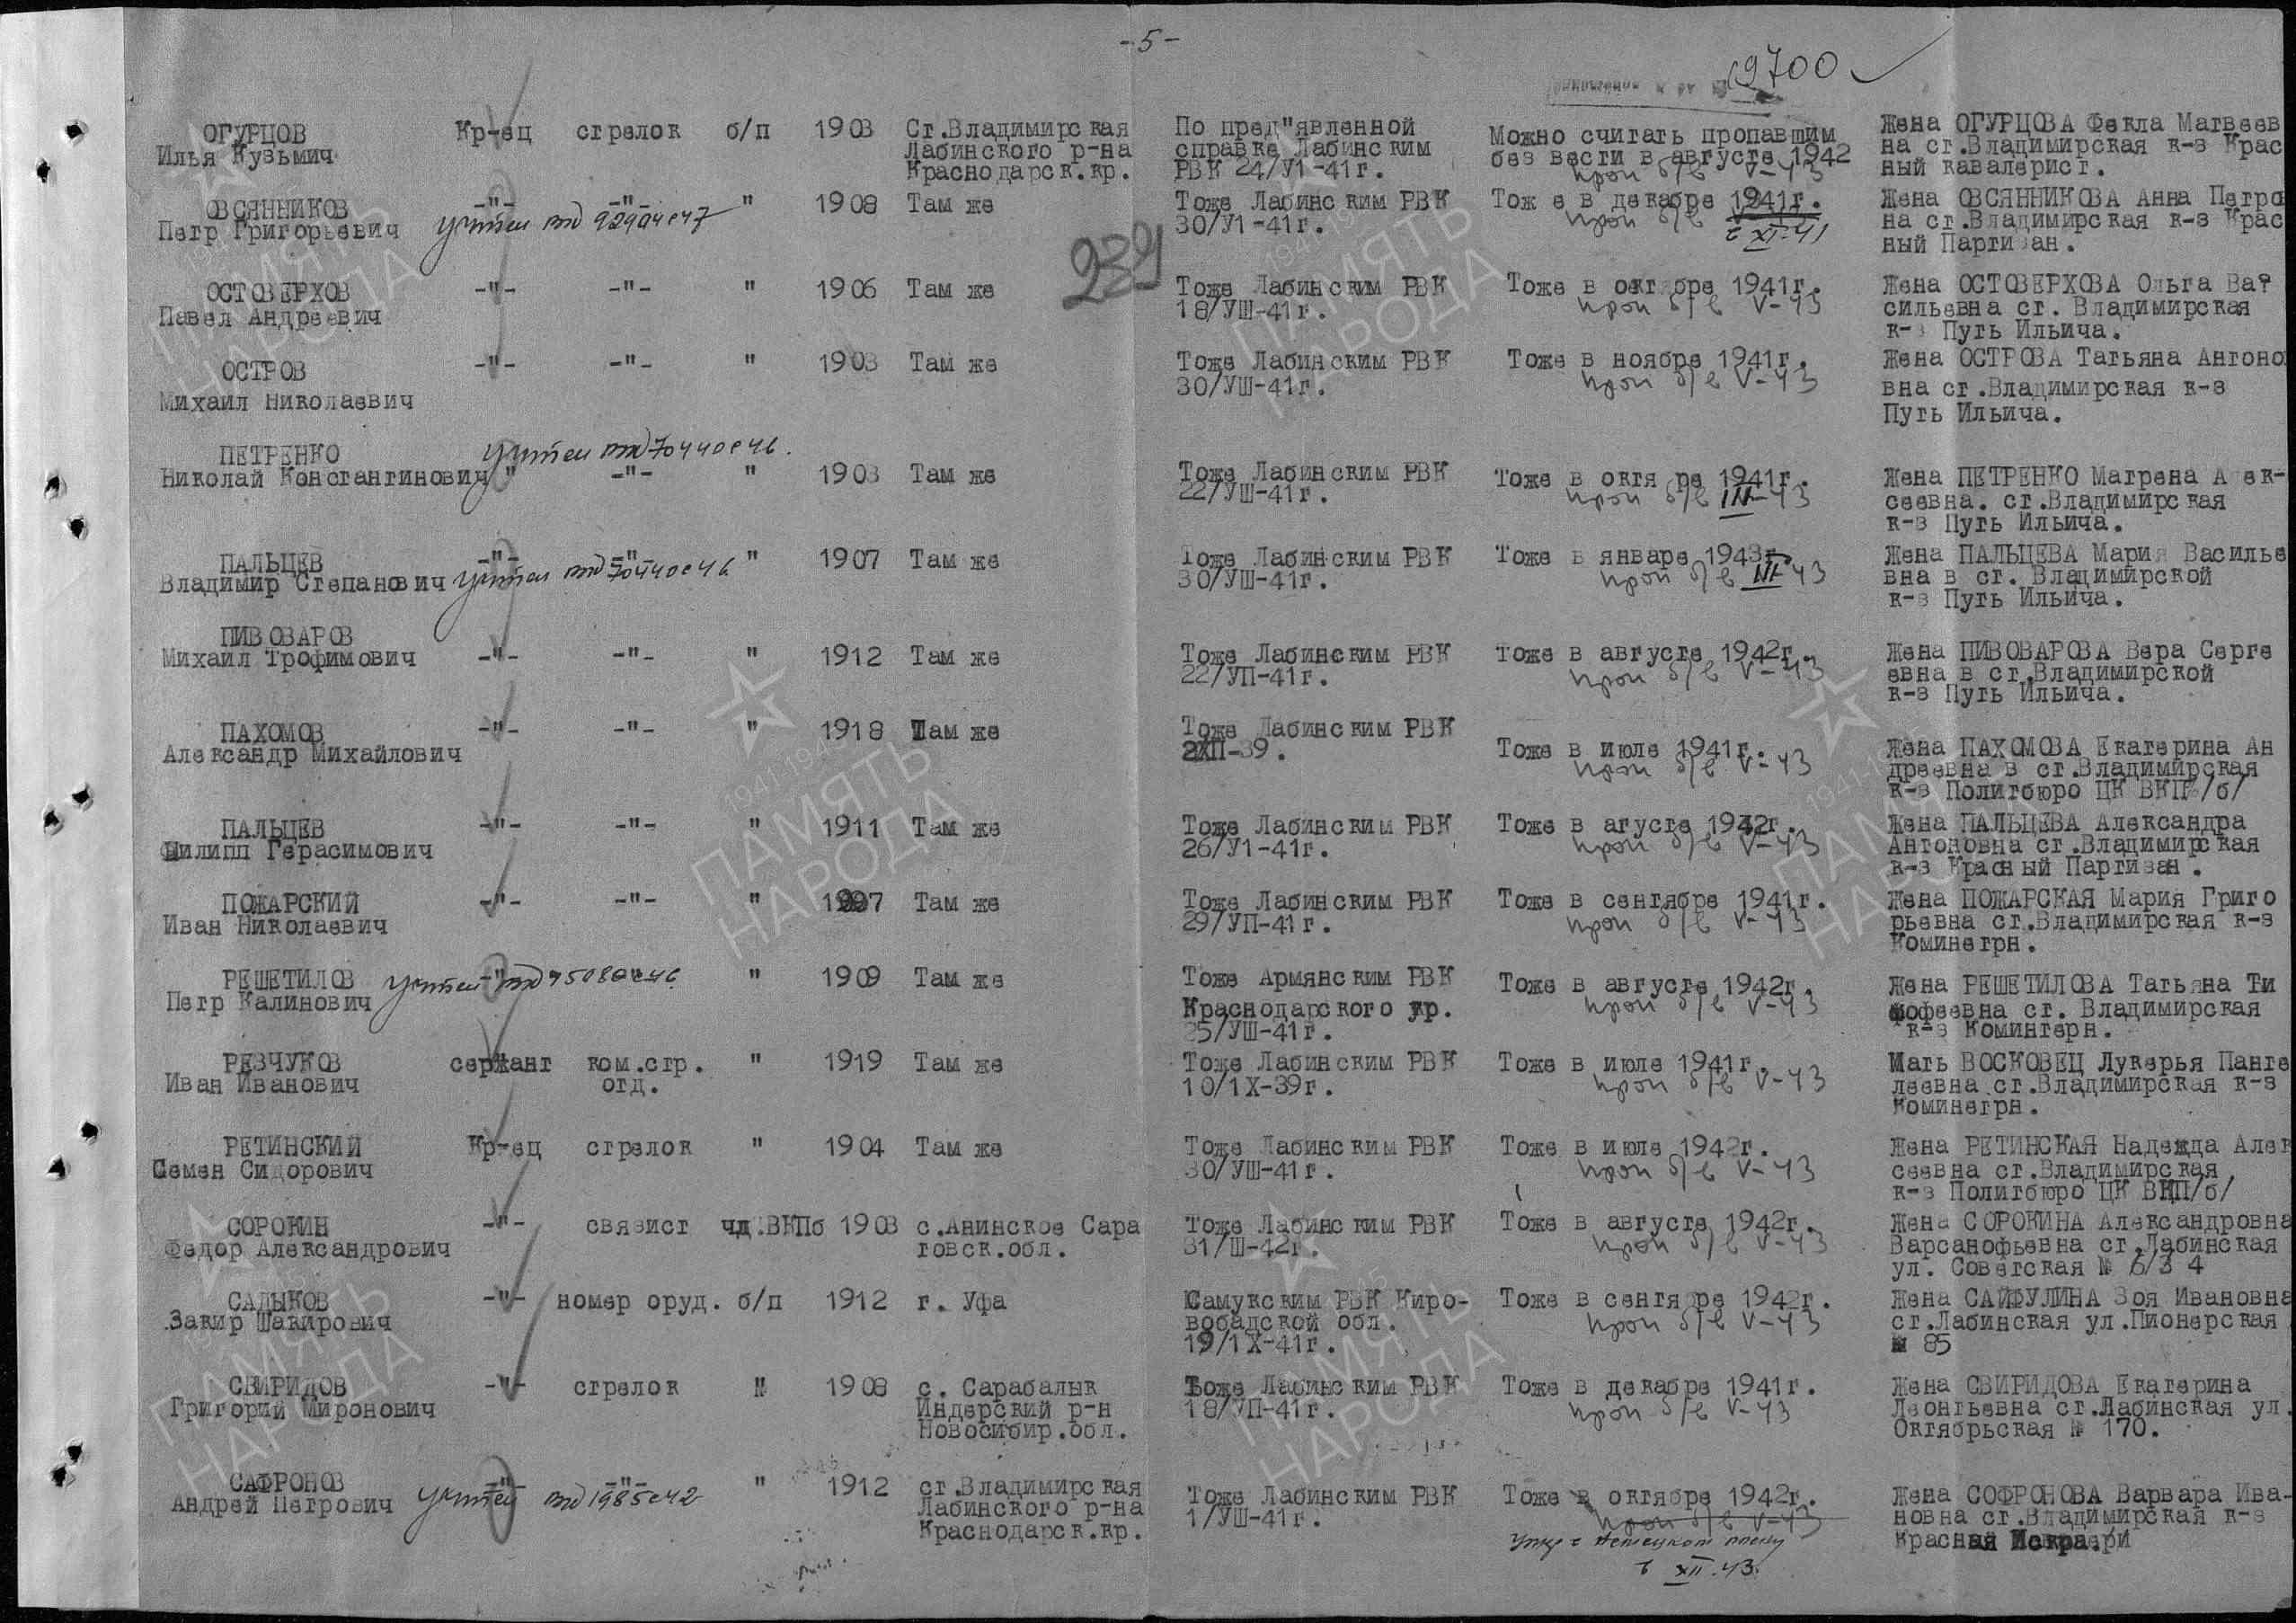 -5-
9700
ОГУРЦОВ Кр-ец стрелок б/п 1903 Ст.Владимирская По пред"явленной Можно считать пропавшим Жена ОГУРЦОВА Фекла Матвеев
Илья Кузьмич Лабинского р-на справке Лабинским без вести в августе 1942 на ст.Владимирская к-з Крас
Краснодарск.кр. РВК 24/У1-41г. проп б/в V-43 ный кавалерист.
ОВСЯННИКОВ -"- -"- " 1908 Там же Тоже Лабинским РВК Тож е в декабре 1941г. Жена ОВСЯННИКОВА Анна Петро
Петр Григорьевич учтен 92904с47 30/У1-41г. проп б/в на ст.Владимирская к-з Крас
в XI-41 ный Партизан.
239
ОСТОВЕРХОВ -"- -"- " 1906 Там же Тоже Лабинским РВК Тоже в октябре 1941г. Жена ОСТОВЕРХОВА Ольга Ва
Павел Андреевич 18/УШ-41г. проп б/в V-43 сильевна ст. Владимирская
к-з Путь Ильича.
ОСТРОВ -"- -"- " 1903 Там же Тоже Лабинским РВК Тоже в ноябре 1941г. Жена ОСТРОВА Татьяна Антоно
Михаил Николаевич 30/УШ-41г. проп б/в V-43 вна ст.Владимирская к-з
Путь Ильича.
ПЕТРЕНКО учтен 70440с46.
Николай Константинович " -"- " 1903 Там же Тоже Лабинским РВК Тоже в октя ре 1941г. Жена ПЕТРЕНКО Матрена А ек-
22/УШ-41г. проп б/в III-43 сеевна. ст.Владимирская
к-з Путь Ильича.
ПАЛЬЦЕВ -"- -"- " 1907 Там же Тоже Лабинским РВК Тоже в январе 1943г. Жена ПАЛЬЦЕВА Мария Василье
Владимир Степанович учтен 70440с46 30/УШ-41г. проп б/в III-43 вна в ст. Владимирской
к-з Путь Ильича.
ПИВОВАРОВ
Михаил Трофимович -"- -"- " 1912 Там же Тоже Лабинским РВК Тоже в августе 1942г. Жена ПИВОВАРОВА Вера Серге
22/УП-41г. проп б/в V-43 евна в ст.Владимирской
к-з Путь Ильича.
ПАХОМОВ -"- -"- " 1918 Там же Тоже Лабинским РВК
Александр Михайлович 2ХП-39. Тоже в июле 1941г. Жена ПАХОМОВА Екатерина Ан
проп б/в V-43 дреевна в ст.Владимирская
к-з Политбюро ЦК ВКП/б/
ПАЛЬЦЕВ -"- -"- " 1911 Там же Тоже Лабинским РВК Тоже в агусте 1942г. Жена ПАЛЬЦЕВА Александра
Филипп Герасимович 26/У1-41г. проп б/в V-43 Антоновна ст.Владимирская
к-з Красный Партизан.
ПОЖАРСКИЙ -"- -"- " Там же Тоже Лабинским РВК Тоже в сентябре 1941г. Жена ПОЖАРСКАЯ Мария Григо
Иван Николаевич 29/УП-41г. проп б/в V-43 рьевна ст.Владимирская к-з
Коминетрн.
РЕШЕТИЛОВ учтен -"- " 1909 Там же Тоже Армянским РВК Тоже в августе 1942г. Жена РЕШЕТИЛОВА Татьяна Ти
Петр Калинович Краснодарского кр. проп б/в V-43 мофеевна ст. Владимирская
25/УШ-41г. к-з Коминтерн.
РЕЗЧУКОВ сержант ком.стр. " 1919 Там же Тоже Лабинским РВК Тоже в июле 1941г. Мать ВОСКОВЕЦ Лукерья Панте
Иван Иванович отд. 10/1Х-39г. проп б/в V-43 леевна ст.Владимирская к-з
Коминетрн.
РЕТИНСКИЙ Кр-ец стрелок " 1904 Там же Тоже Лабинским РВК Тоже в июле 1942г. Жена РЕТИНСКАЯ Надежда Алек
Семен Сидорович 30/УШ-41г. проп б/в V-43 сеевна ст.Владимирская
к-з Политбюро ЦК ВКП/б/
СОРОКИН -"- связист чл.ВКПб 1903 с.Анинское Сара Тоже Лабинским РВК Тоже в августе 1942г. Жена СОРОКИНА Александровна
Федор Александрович товск.обл. 31/Ш-42г. проп б/в V-43 Варсанофьевна ст.Лабинская
ул. Советская № 6/3 4
САДЫКОВ -"- номер оруд. б/п 1912 г. Уфа Самукским РВК Киро- Тоже в сентябре 1942г. Жена САЙФУЛИНА Зоя Ивановна
Закир Шакирович вобадской обл. проп б/в V-43 ст.Лабинская ул.Пионерская
19/1Х-41г. № 85
СВИРИДОВ -"- стрелок " 1908 с. Сарабалык Тоже Лабинским РВК Тоже в декабре 1941г. Жена СВИРИДОВА Екатерина
Григорий Миронович Индерский р-н 18/УП-41г. проп б/в V-43 Леонтьевна ст.Лабинская ул.
Новосибир.обл. Октябрьская № 170.
САФРОНОВ -"- -"- " 1912 ст.Владимирская Тоже Лабинским РВК Тоже в октябре 1942г. Жена СОФРОНОВА Варвара Ива-
Андрей Петрович учтен 1985с42 Лабинского р-на 1/УШ-41г. проп б/в V-43 новна ст.Владимирская к-з
Краснодарск.кр. немецком плену Красная Искра.
в XII.43.
ПАМЯТЬ НАРОДА
1941-1945